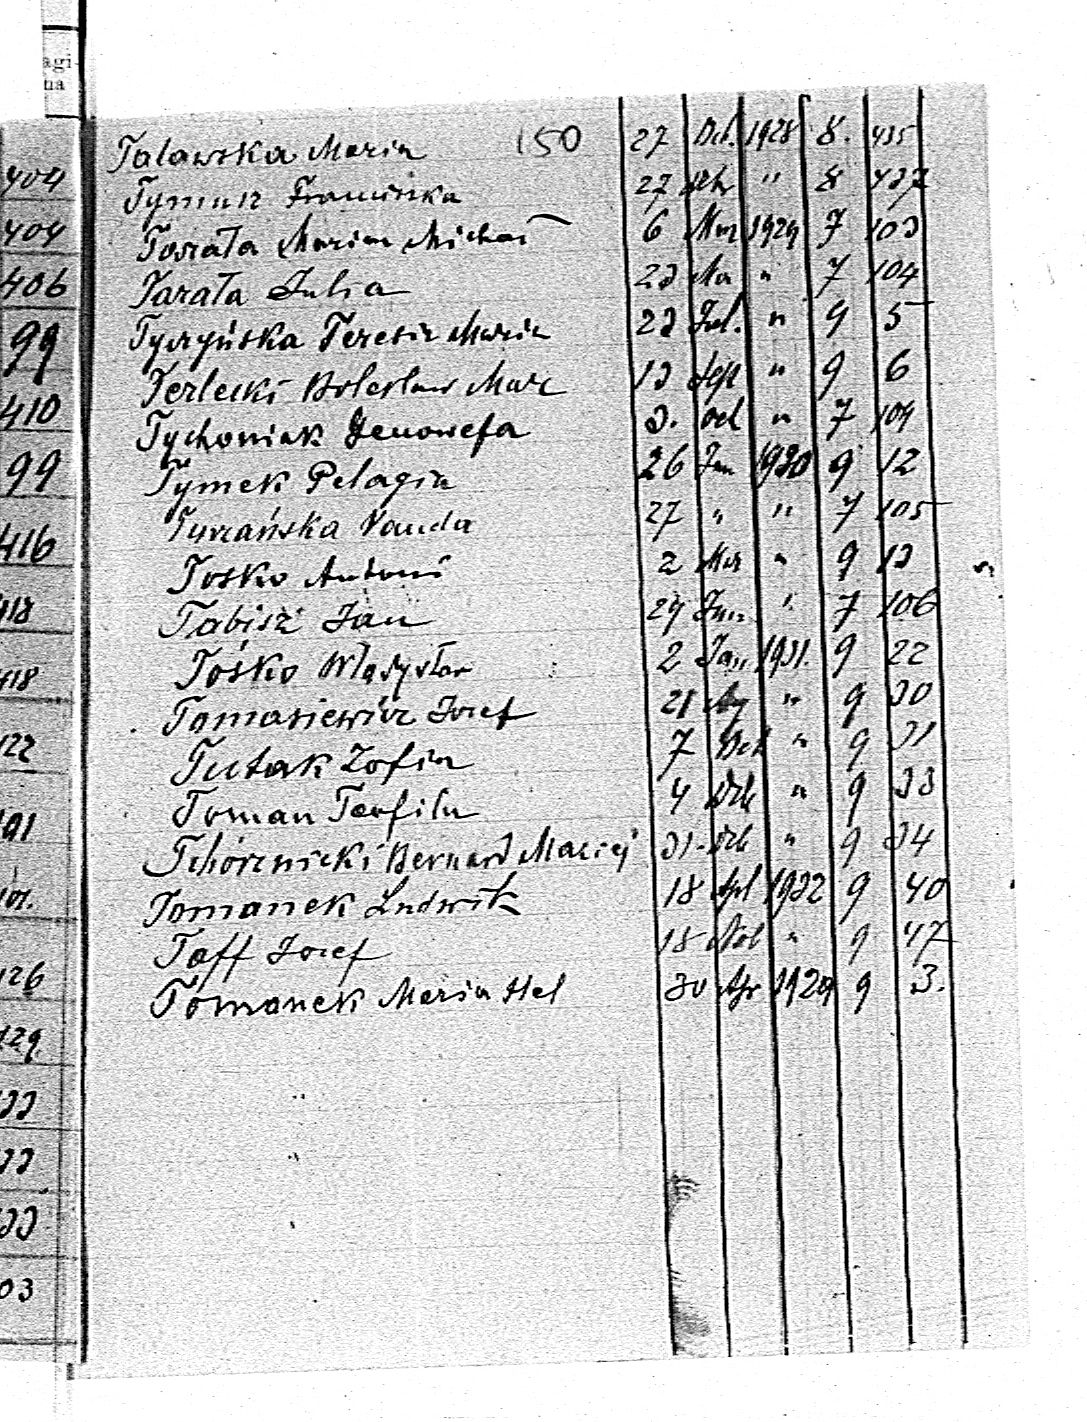 agi-
na
404
404
406
99
410
99
416
418
418
422
126
129
03
150
Talawska Maria 27 Oct. 1928 8. 435
Tymusz Franciszka 27 " 8 437
Tarata Marian Michał 6 Mar 1929 7 103
Tarata Julia 23 Mar " 7 104
Tyczyńska Teresa Maria 23 Jul. " 9 5
Terlecki Bolesław Mar 13 Sept " 9 6
Tychoniak Genowefa 3. Oct " 7 104
Tymek Pelagia 26 Jan 1930 9 12
Turzańska Wanda 27 " " 7 105
Tośko Antoni 2 Mar " 9 13
Tabisz Jan 24 Jun " 7 106
Tośko Władysław 2 Jan 1931. 9 22
Tomasiewicz Józef 21 " 9 30
Tutak Zofia 7 Oct " 9 31
Toman Teofila 4 " 9 33
Tchórznicki Bernard Maciej 31 " 9 34
Tomanek Ludwik 18 Apl 1932 9 40
Taff Józef 18 " 9 47
Tomanek Maria Hel 30 Apr 1929 9 3.